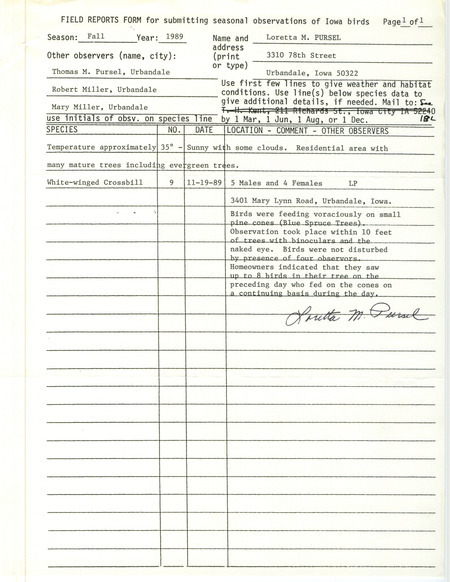 FIELD REPORTS FORM for submitting seasonal observations of Iowa birds Page 1 of 1
Season: Fall Year: 1989 Name and address (print or type) Loretta M. PURSEL
Other observers (name, city): 3310 78th Street
Thomas M. Pursel, Urbandale Urbandale, Iowa 50322
Robert Miller, Urbandale Use first few lines to give weather and habitat
conditions. Use line(s) below species data to
Mary Miller, Urbandale give additional details, if needed. Mail to:
T. H. Kent, 211 Richards St., Iowa City IA 52240
use initials of obsv. on species line by 1 Mar, 1 Jun, 1 Aug, or 1 Dec.
SPECIES NO. DATE LOCATION - COMMENT - OTHER OBSERVERS
Temperature approximately 35° - Sunny with some clouds. Residential area with
many mature trees including evergreen trees.
White-winged Crossbill 9 11-19-89 5 Males and 4 Females LP
3401 Mary Lynn Road, Urbandale, Iowa.
Birds were feeding voraciously on small
pine cones (Blue Spruce Trees).
Observation took place within 10 feet
of trees with binoculars and the
naked eye. Birds were not disturbed
by presence of four observors.
Homeowners indicated that they saw
up to 8 birds in their tree on the
preceding day who fed on the cones on
a continuing basis during the day.
Loretta M. Pursel